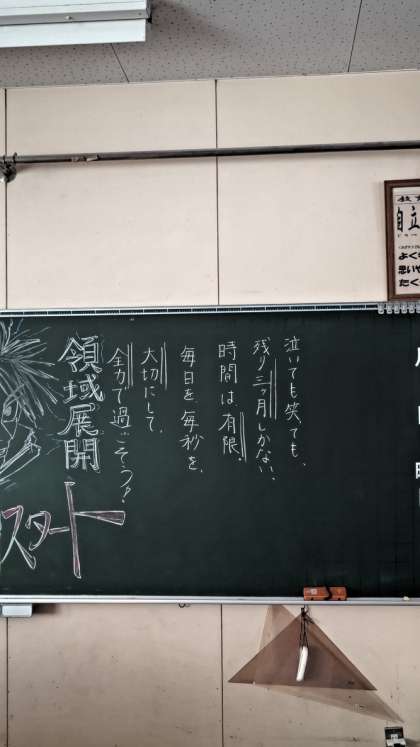 泣いても笑っても、
残り三ヶ月しかない。
時間は有限。
毎日を、毎秒を、
大切にして、
全力で過ごそう！
領域展開
スタート
自立
よく
思いや
たく